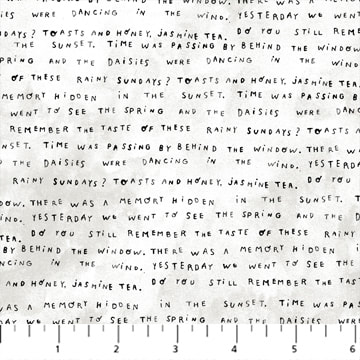 IES WERE DANCING IN THE WIND. YESTERDAY WE WENT
DAYS? TOASTS AND HONEY, JASMINE TEA. DO YOU STILL REME
THE SUNSET. TIME WAS PASSING BY BEHIND THE WINDOW
PRING AND THE DAISIES WERE DANCING IN THE WIND.
OF THESE RAINY SUNDAYS? TOASTS AND HONEY, JASMINE TEA.
MEMORY HIDDEN IN THE SUNSET. TIME WAS PASSING B
WENT TO SEE THE SPRING AND THE DAISIES WERE DANC
REMEMBER THE TASTE OF THESE RAINY SUNDAYS? TOASTS A
NSET. TIME WAS PASSING BY BEHIND THE WINDOW. THERE W
D THE DAISIES WERE DANCING IN THE WIND. YESTERDAY
RAINY SUNDAYS? TOASTS AND HONEY, JASMINE TEA. DO YOU
DOW. THERE WAS A MEMORY HIDDEN IN THE SUNSET. T
IND. YESTERDAY WE WENT TO SEE THE SPRING AND THE D
TEA. DO YOU STILL REMEMBER THE TASTE OF THESE RAINY
BY BEHIND THE WINDOW. THERE WAS A MEMORY HIDDEN I
NCING IN THE WIND. YESTERDAY WE WENT TO SEE THE
AND HONEY, JASMINE TEA. DO YOU STILL REMEMBER THE TAST
WAS A MEMORY HIDDEN IN THE SUNSET. TIME WAS PAS
AY WE WENT TO SEE THE SPRING AND THE DAISIES WERE
1 2 3 4 5 6